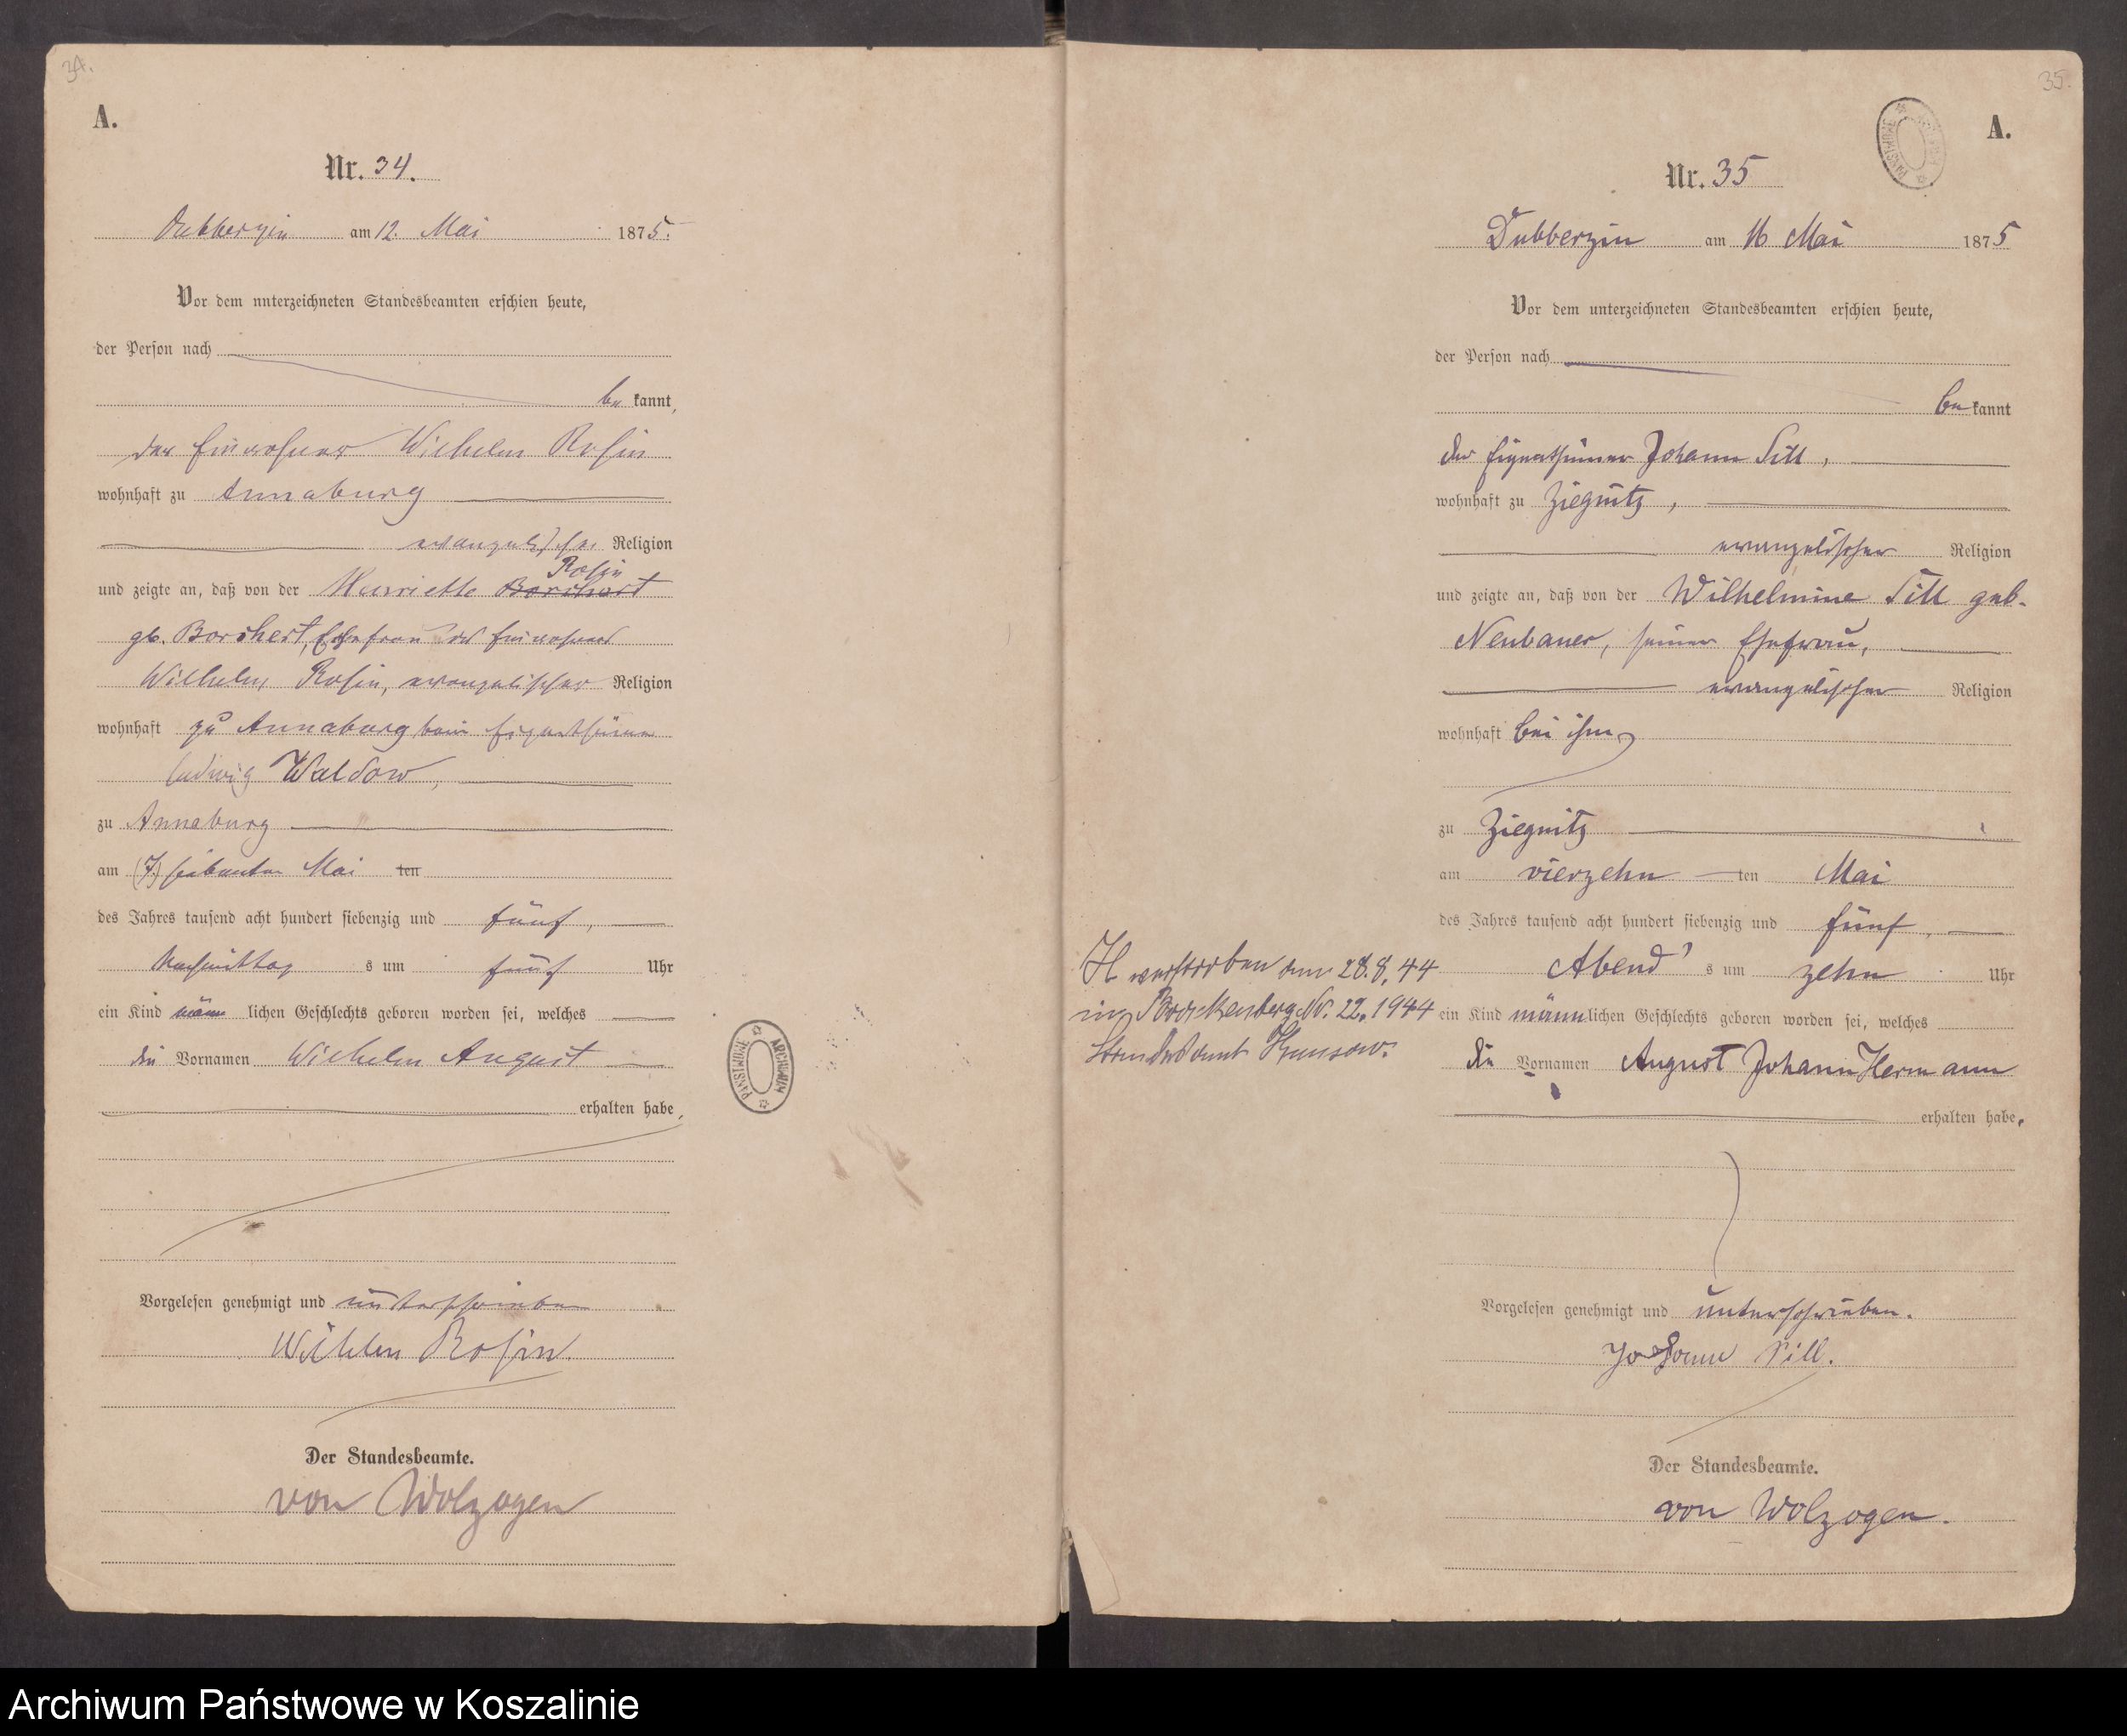 34.
A.
Nr. 34.
Dubberzin am 12. Mai 1875.
Vor dem unterzeichneten Standesbeamten erschien heute,
der Person nach
bekannt,
der Einwohner Wilhelm Rosin
wohnhaft zu Annaburg
evangelischer Religion
Rosin
und zeigte an, daß von der Henriette Borchert
gb. Borchert, Ehefrau des Einwohners
Wilhelm Rosin, evangelischer Religion
wohnhaft zu Annaburg beim Eigenthümer
Ludwig Waldow,
zu Annaburg
am (7) siebenten Mai ten
des Jahres tausend acht hundert siebenzig und fünf,
Nachmittags um fünf Uhr
ein Kind männlichen Geschlechts geboren worden sei, welches
die Vornamen Wilhelm August
erhalten habe,
Vorgelesen genehmigt und unterschrieben
Wilhlm Rosin.
Der Standesbeamte.
von Wolzogen
PAŃSTWOWE ARCHIWUM
35.
A.
Nr. 35
Dubberzin am 16 Mai 1875
Vor dem unterzeichneten Standesbeamten erschien heute,
der Person nach
bekannt
der Eigenthümer Johann Till,
wohnhaft zu Ziegnitz,
evangelischer Religion
und zeigte an, daß von der Wilhelmine Till geb.
Neubauer, seiner Ehefrau,
evangelischer Religion
wohnhaft bei ihm
zu Ziegnitz
am vierzehnten Mai
des Jahres tausend acht hundert siebenzig und fünf,
Abends um zehn Uhr
ein Kind männlichen Geschlechts geboren worden sei, welches
die Vornamen August Johann Hermann
erhalten habe.
H verstorben am 28.8.44
in Nr. 22.1944
Standesamt
Vorgelesen genehmigt und unterschrieben.
Johann Till.
Der Standesbeamte.
von Wolzogen.
Archiwum Państwowe w Koszalinie